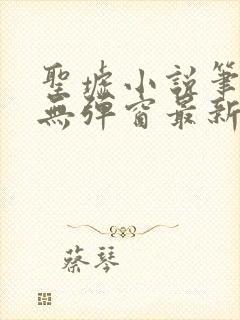 聖墟小說筆
無彈窗最新
蔡琴